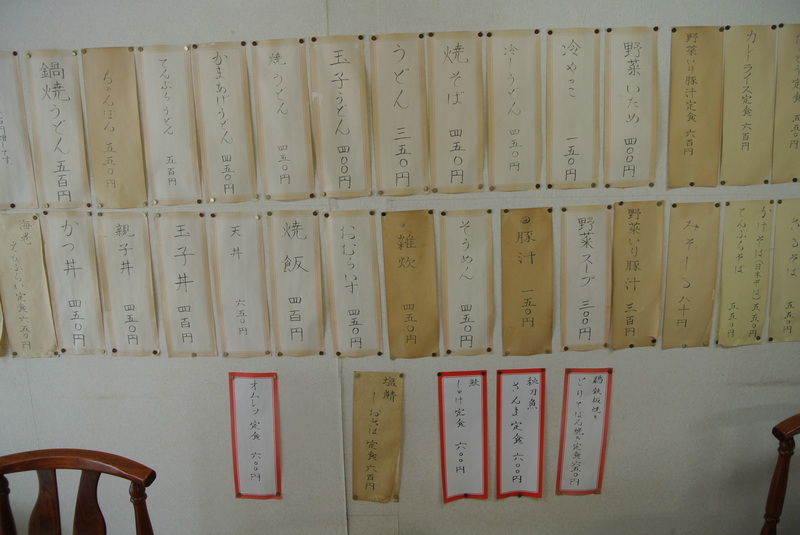 カレーライス定食 六百円
野菜いり豚汁定食 六百円
野菜いため 四〇〇円
冷やっこ 一五〇円
冷しうどん 四五〇円
焼そば 四五〇円
うどん 三五〇円
玉子うどん 四〇〇円
焼うどん 四五〇円
かまあげうどん 四五〇円
てんぷらうどん 五百円
ちゃんぽん 五五〇円
鍋焼うどん 五百円
ざるそば
五五〇円
てんぷらそば 五五〇円
みそしる 八十円
野菜いり豚汁 三百円
野菜スープ 三〇〇円
豚汁 一五〇円
そうめん 四五〇円
雑炊 四五〇円
おむらいす 四五〇円
焼飯 四百円
天丼 六五〇円
玉子丼 四百円
親子丼 四五〇円
かつ丼 四五〇円
海老
定食 六五〇円
鶏鉄板焼き
定食
秋刀魚
さんま定食 六〇〇円
鮭
しゃけ定食 六〇〇円
塩鯖
しおさば定食 六百円
オムレツ定食 六〇〇円